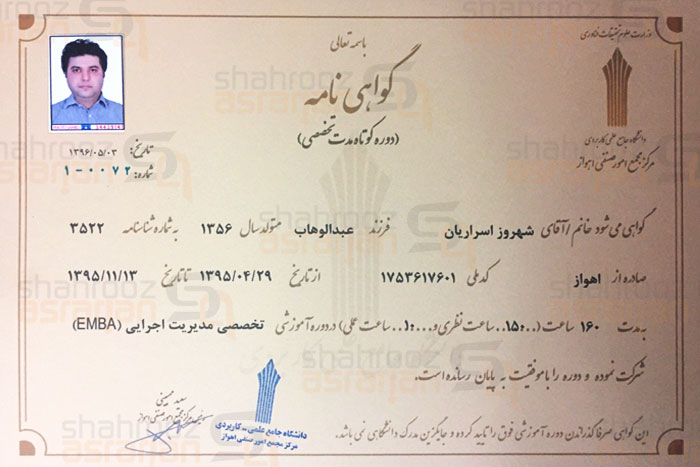 باسمه تعالی
وزارت علوم تحقیقات و فناوری
گواهی نامه
(دوره کوتاه مدت تخصصی)
دانشگاه جامع علمی کاربردی
مرکز مجمع امور صنفی اهواز
تاریخ: ۱۳۹۶/۰۵/۰۳
شماره: ۱-۰۰۷۲
گواهی می شود خانم / آقای شهروز اسراریان فرزند عبدالوهاب متولد سال ۱۳۵۶ به شماره شناسنامه ۳۵۲۲
صادره از اهواز کد ملی ۱۷۵۳۶۱۷۶۰۱ از تاریخ ۱۳۹۵/۰۴/۲۹ تا تاریخ ۱۳۹۵/۱۱/۱۳
به مدت ۱۶۰ ساعت (..۱۵۰.. ساعت نظری و ..۱۰.. ساعت عملی) در دوره آموزشی تخصصی مدیریت اجرایی (EMBA)
شرکت نموده و دوره را با موفقیت به پایان رسانده است.
سعید حسینی
مرکز مجمع امور صنفی اهواز
دانشگاه جامع علمی - کاربردی
مرکز مجمع امور صنفی اهواز
این گواهی صرفا گذراندن دوره آموزشی فوق را تایید کرده و جایگزین مدرک دانشگاهی نمی باشد.
shahrooz
asrarian